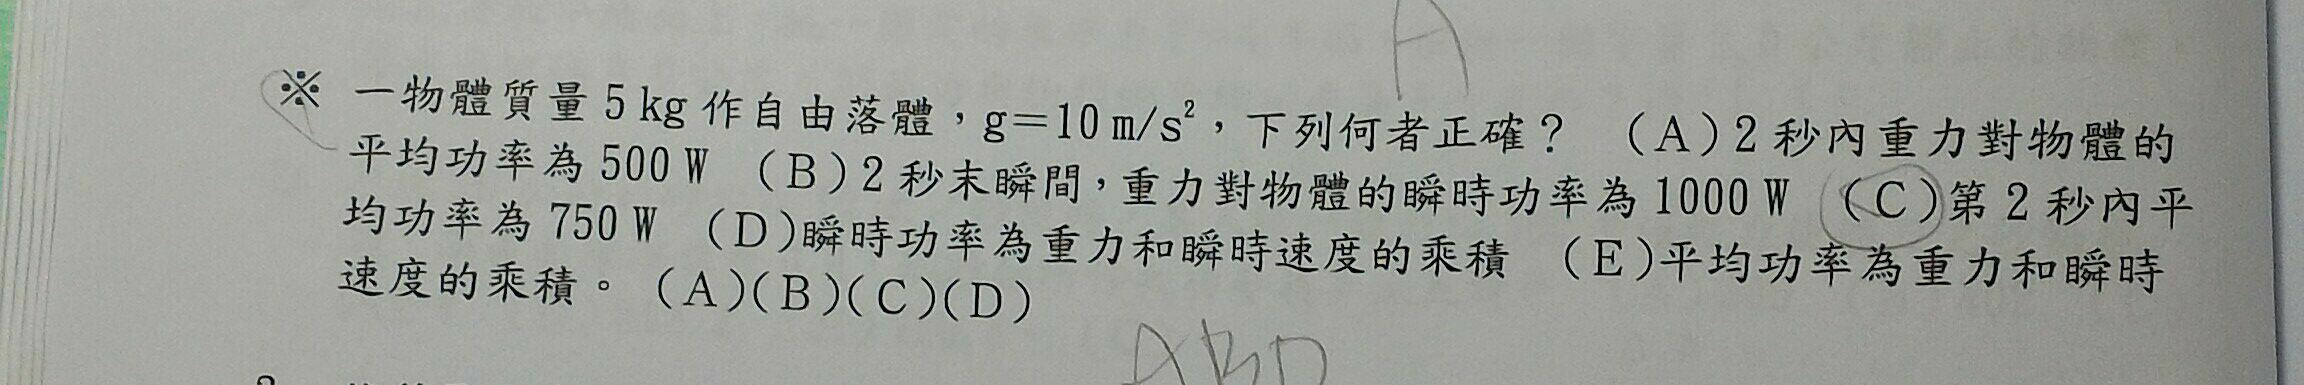 A
※ 一物體質量 5 kg 作自由落體，g＝10 m/s²，下列何者正確？ （A）2 秒內重力對物體的
平均功率為 500 W （B）2 秒末瞬間，重力對物體的瞬時功率為 1000 W （C）第 2 秒內平
均功率為 750 W （D）瞬時功率為重力和瞬時速度的乘積 （E）平均功率為重力和瞬時
速度的乘積。 （A）（B）（C）（D）
ABD